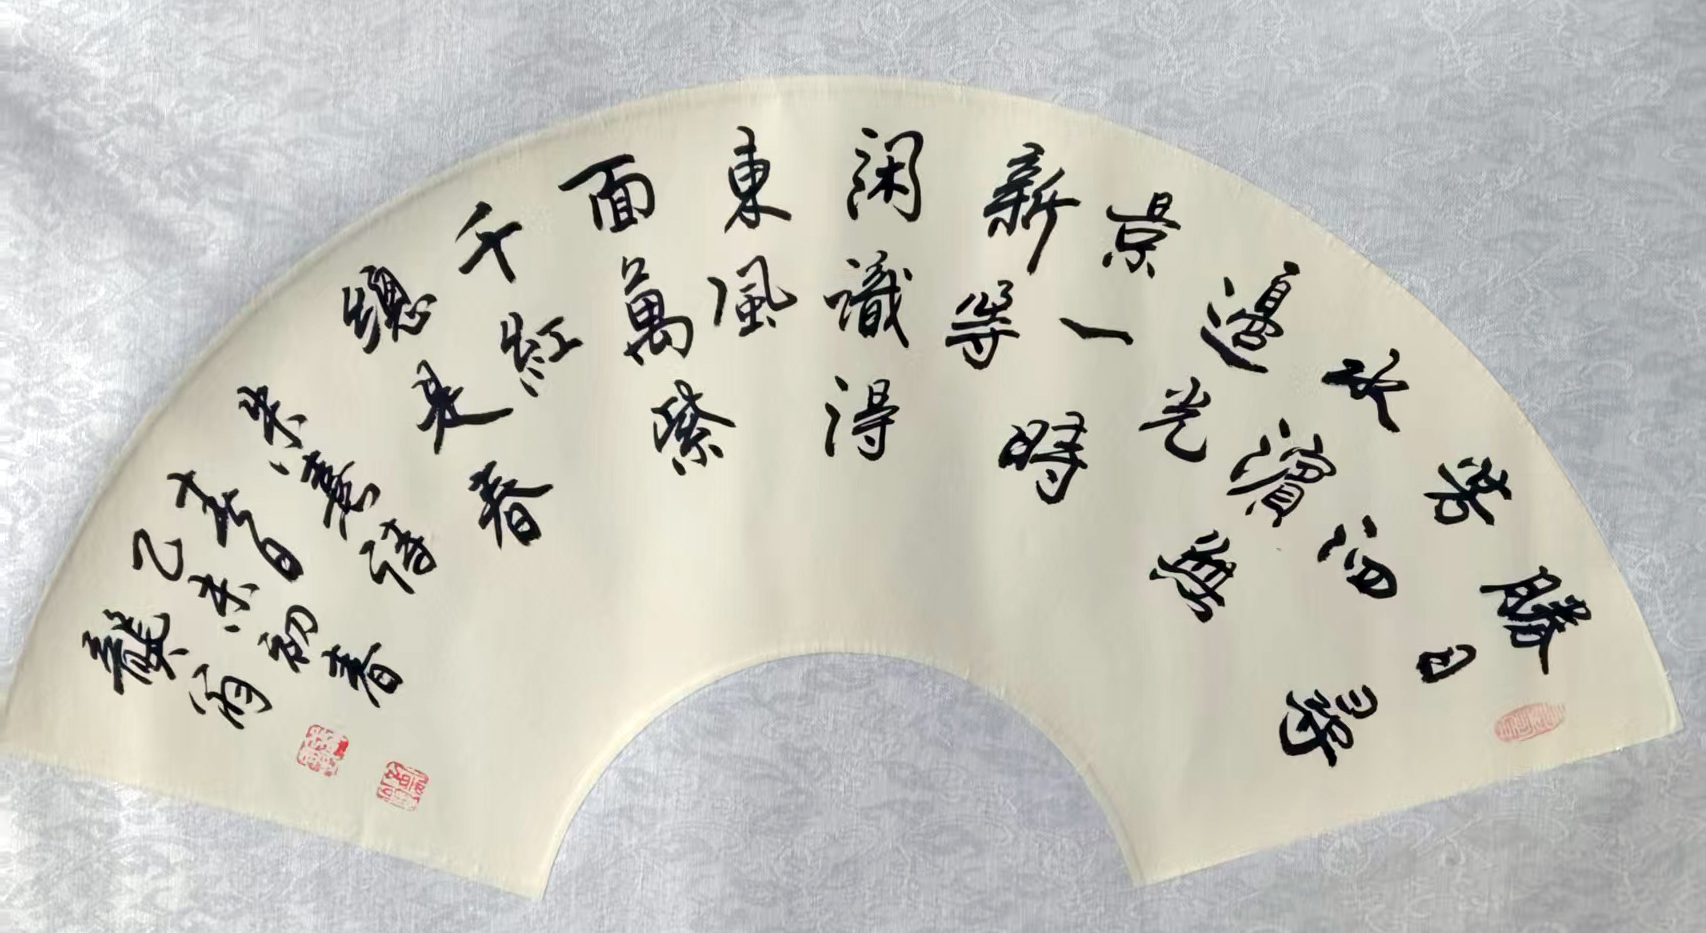 勝日尋
芳泗
水濱無
邊光
景一時
新等
閑識得
東風
面萬紫
千紅
總是春
朱熹詩
春日
乙未初春
龔